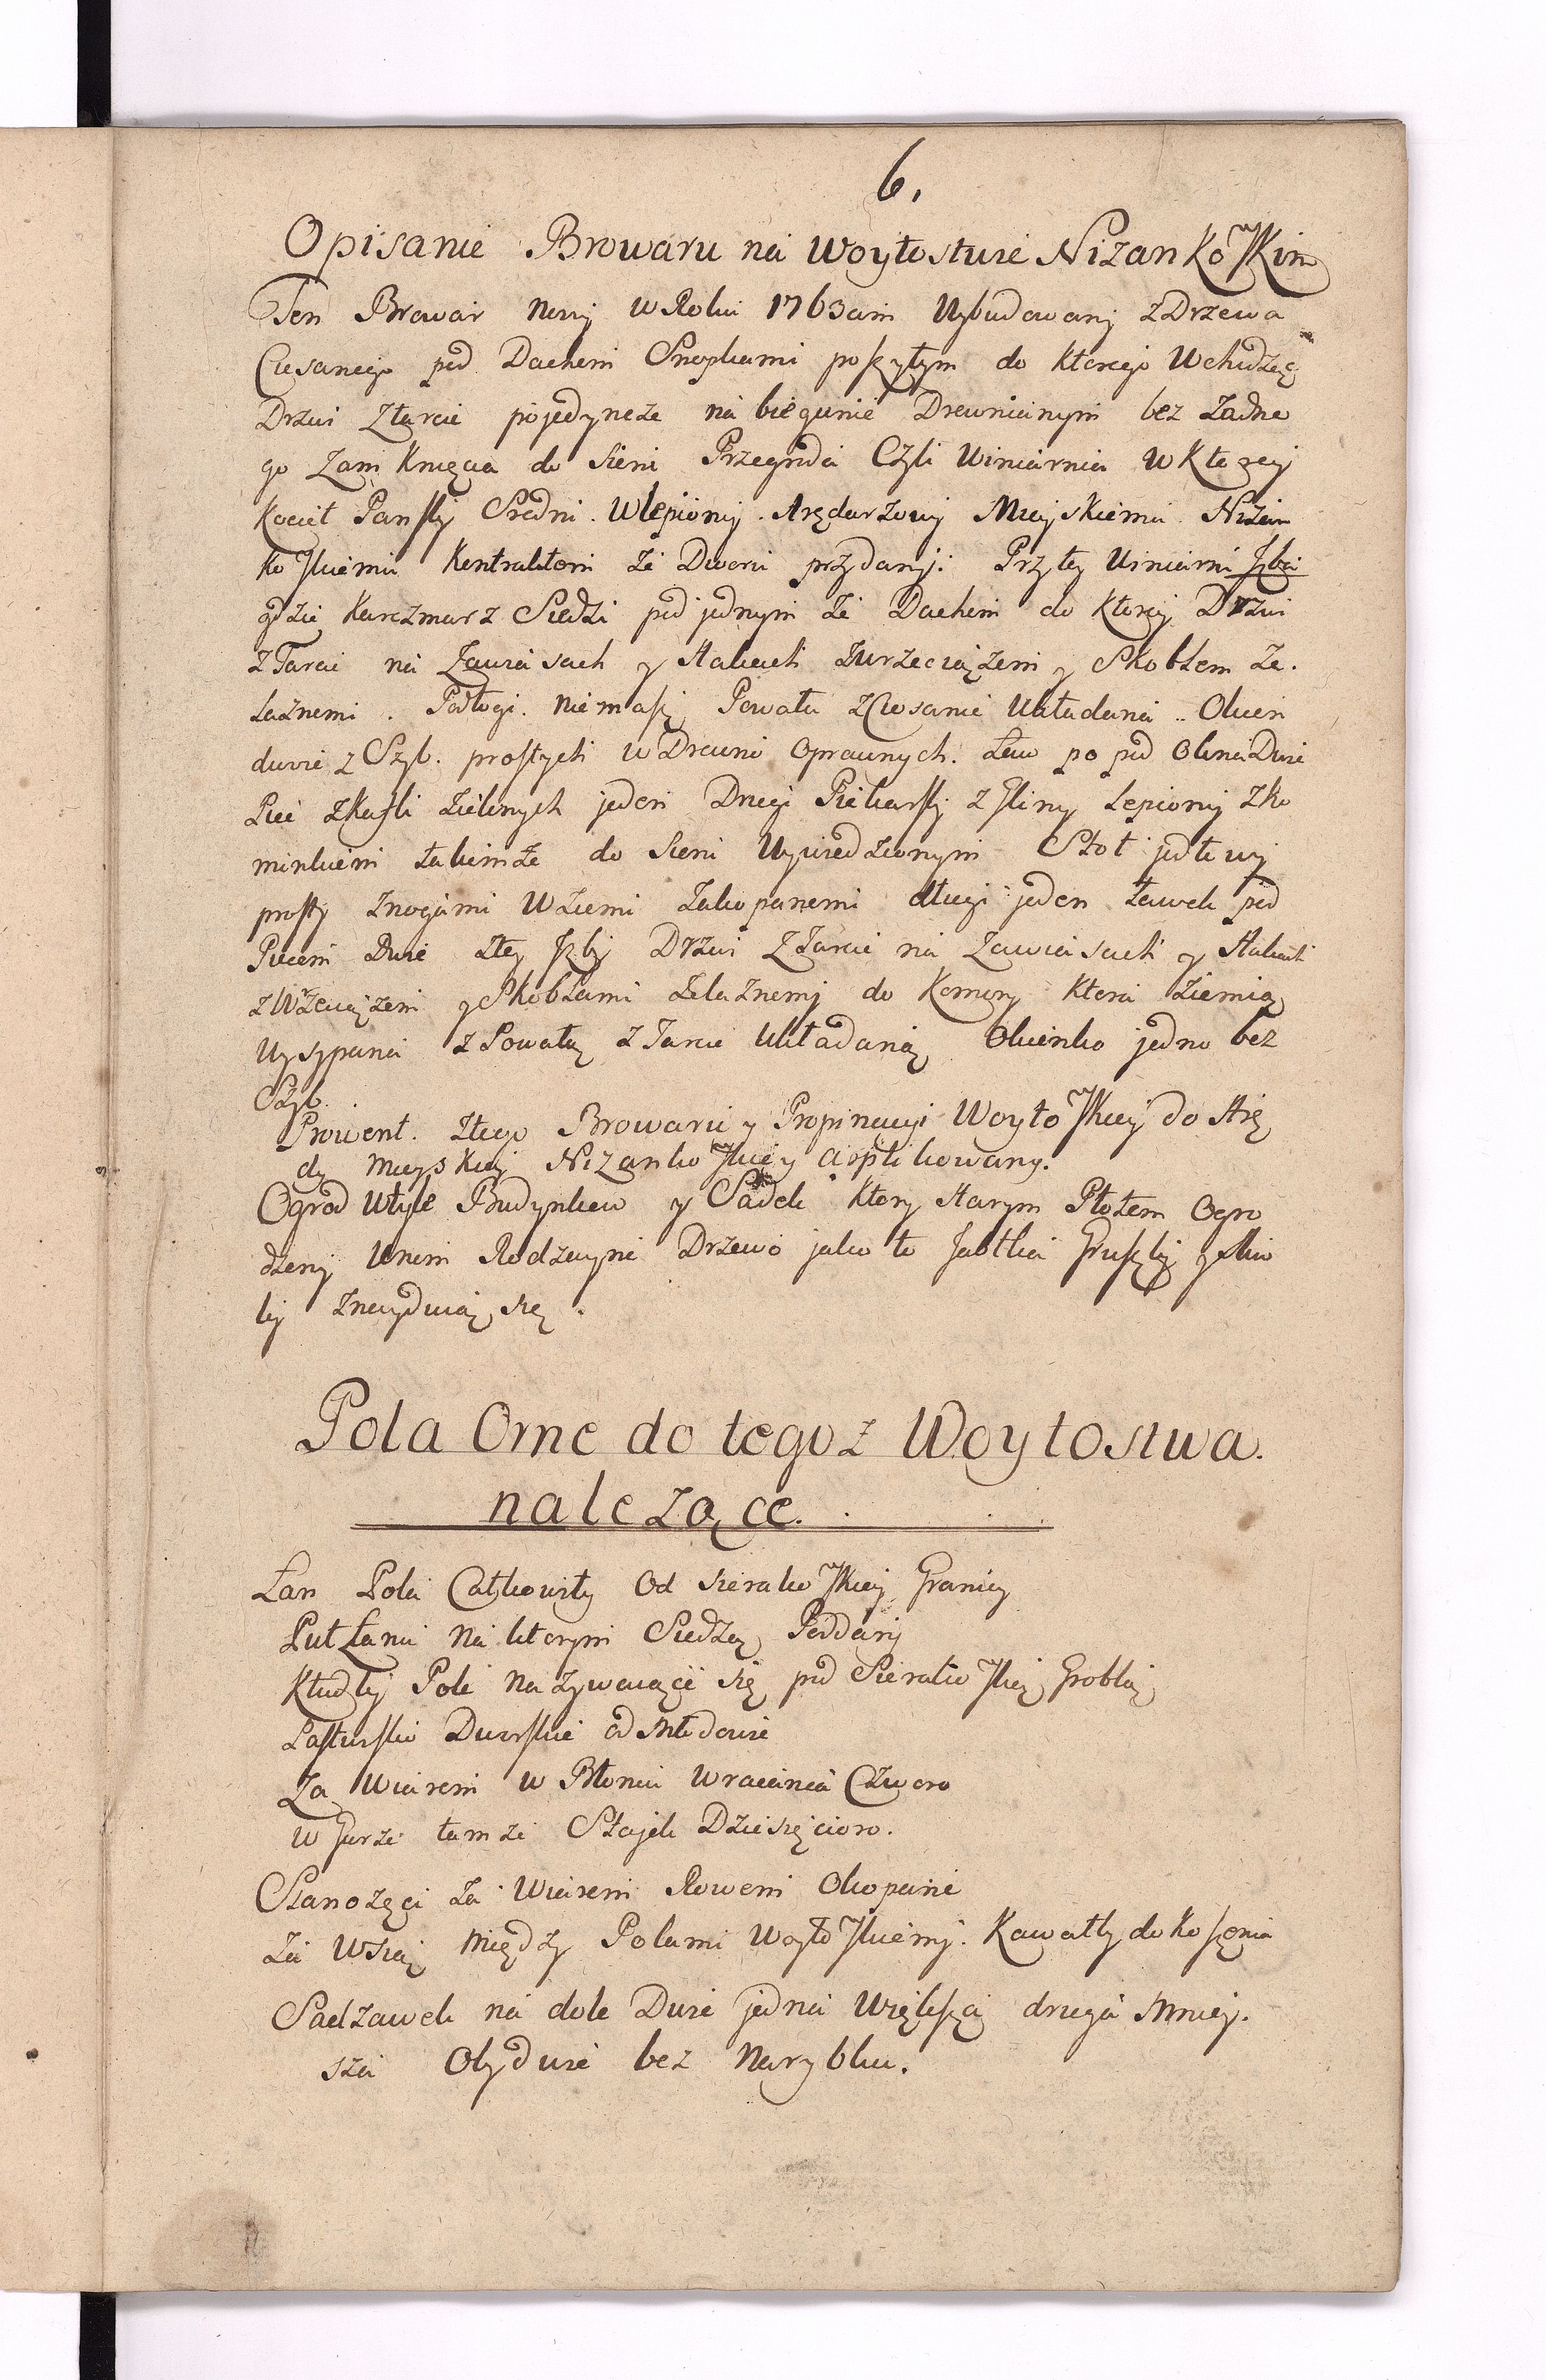 6.
Opisanie Browaru na Woytostwie Nizankowskim
Ten Browar nowy w Roku 1763cim Wybudowany z Drzewa
Ciesanego pod Dachem Snopkami poszytym do ktorego Wchodząc
Drzwi z tarcic pojedyncze na biegunie Drewnianym bez zadne
go Zamknięcia do Sieni Przegroda Czyli Winiarnia w Ktorey
Kocieł Panski Sredni Wlepiony Arędarzowy Mieyskiemu Nizan
kowskiemu Kontraktem ze Dworu przydany. Przy tey Winiarni Jzba
gdzie Karczmarz Siedzi pod jednym ze Dachem do ktorey Drzwi
z Tarcic na Zawiasach y Hakach z Wrzeciążem y Skoblem że.
laznemi. Podłogi niemasz Powała z Ciosanic Układana. Okien
dwoie z Szyb prostych w Drewno Oprawnych. Ław po pod Okna Dwie
Piec z Kafli zielonych jeden Drugi Piekarski z Gliny Lepiony z ko
minkiem takimże do Sieni Wywiedzionym Stoł jodłowy
prosty z nogami W ziemi Zakopanemi długi jeden Ławek pod
Piecem Dwie z tey Jzby Drzwi z Tarcic na Zawiasach y Hakach
z Wrzeciążem y Skoblami zelaznemy do Komory Ktora Ziemią
Wysypana z Powałą z Tarcic Układaną Okienko jedno bez
Szyb.
Prowent z tego Browaru y Propinacyi Woytowskiey do Arę
dy Mieyskiey Nizankowskiey applikowany.
Ogrod W tyle Budynkow y Sadek ktory starym Płotem Ogro
dzony W nim Rodzayne Drzewo jako to Jabłka Gruszky y Sliw
ky Znayduią się.
Pola Orne do tegoz Woytostwa
nalezące.
Łan Pola Całkowity Od Sierakowskiey Granicy
Puł Łana Na ktorym Siedzą Poddani
Kłudky Pole Nazywaiące się pod Sierakowską Groblą
Pastursko Dworskie od
Za Wiarem w Błoniu Czworo
w Gurze tamze Stajek Dziesięcioro.
Sianozęci za Wiarem Rowem Okopane
Za Wsią między Polami Woytowskiemy Kawałky do Koszenia
Sadzawek na dole Dwie jedna Więksża druga Mniey.
sza Obydwie bez Narybku.